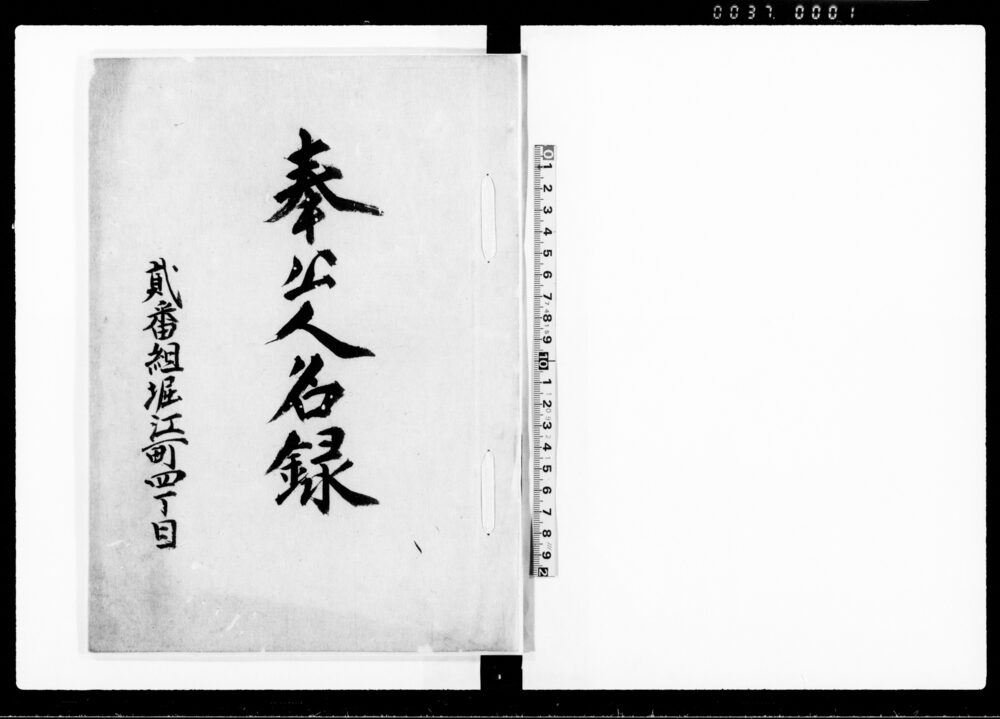 0037 0001
奉公人名録
貳番組堀江町四丁目
0 1 2 3 4 5 6 7 8 9 10 1 2 3 4 5 6 7 8 9 2